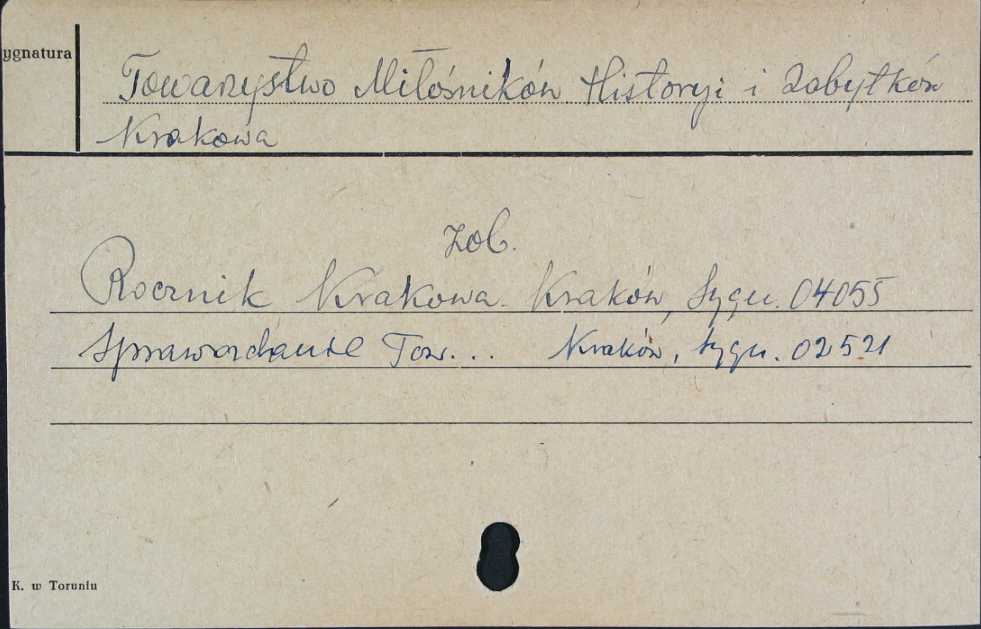 ygnatura
Towarzystwo Miłośników Historyi i Zabytków
Krakowa
zob.
Rocznik Krakowa. Kraków, Sygn. 04055
Sprawozdanie Tow... Kraków, Sygn. 02521
K. w Toruniu